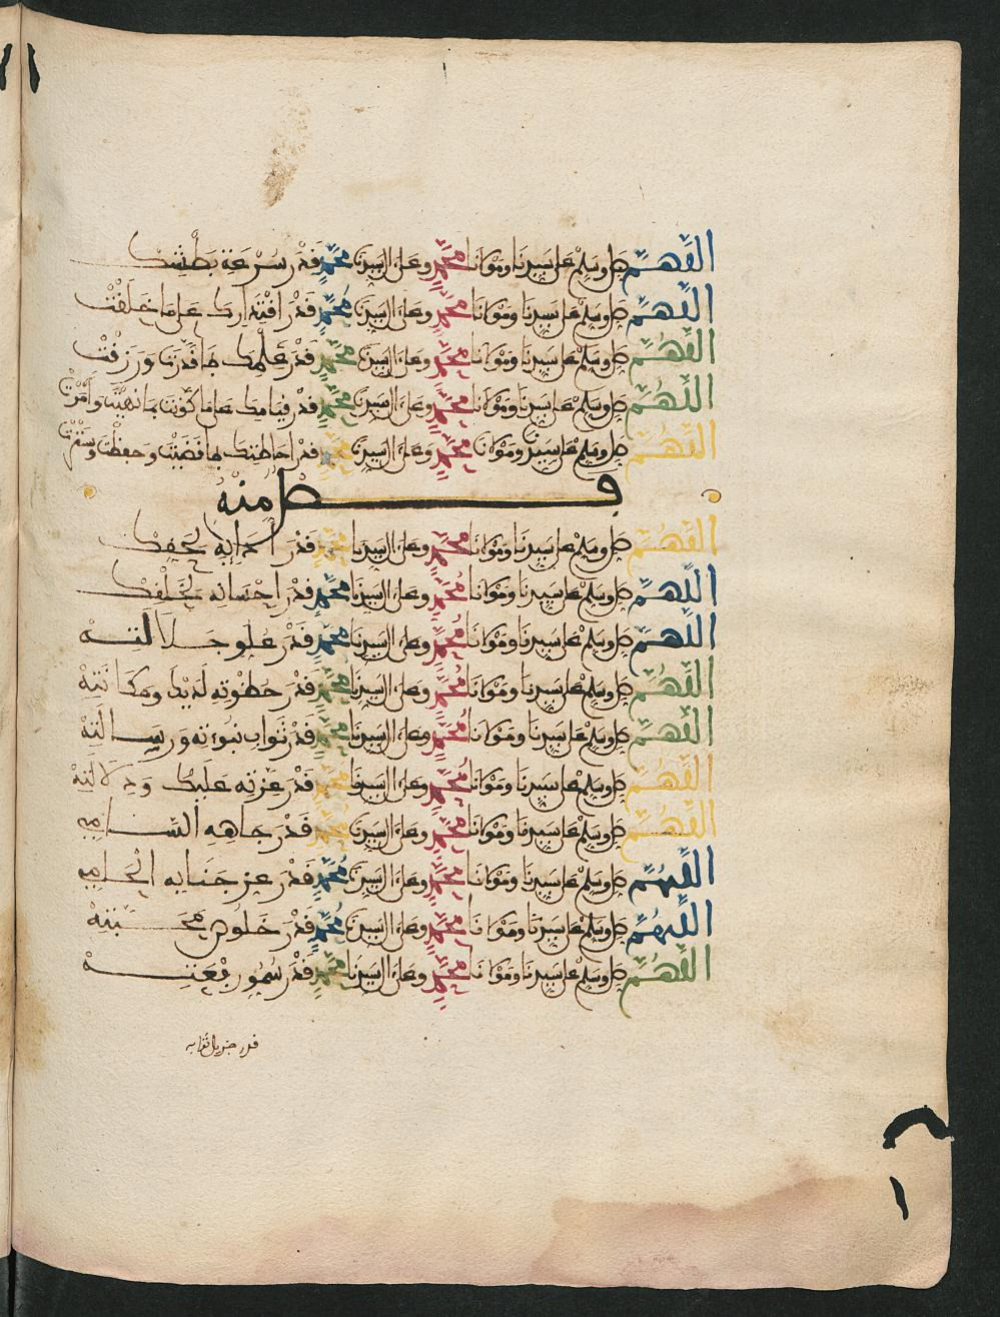 اللهم صل وسلم على سيدنا ومولانا محمد وعلى ءال سيدنا محمد قدر سرعة بطشك
اللهم صل وسلم على سيدنا ومولانا محمد وعلى ءال سيدنا محمد قدر اقتدارك على ما خلقت
اللهم صل وسلم على سيدنا ومولانا محمد وعلى ءال سيدنا محمد قدر علمك بما قدرت ورزقت
اللهم صل وسلم على سيدنا ومولانا محمد وعلى ءال سيدنا محمد قدر قيامك على ما كونت ما نهيت وأمرت
اللهم صل وسلم على سيدنا ومولانا محمد وعلى ءال سيدنا محمد قدر احاطتك بما قضيت وحفظت وسترت
فصل منه
اللهم صل وسلم على سيدنا ومولانا محمد وعلى ءال سيدنا محمد قدر بحقك
اللهم صل وسلم على سيدنا ومولانا محمد وعلى ءال سيدنا محمد قدر احسانه لخلقك
اللهم صل وسلم على سيدنا ومولانا محمد وعلى ءال سيدنا محمد قدر علو جلالته
اللهم صل وسلم على سيدنا ومولانا محمد وعلى ءال سيدنا محمد قدر حظوته لديك ومكانته
اللهم صل وسلم على سيدنا ومولانا محمد وعلى ءال سيدنا محمد قدر ثواب نبوءته ورسالته
اللهم صل وسلم على سيدنا ومولانا محمد وعلى ءال سيدنا محمد قدر عزته عليك ودلالته
اللهم صل وسلم على سيدنا ومولانا محمد وعلى ءال سيدنا محمد قدر جاهه الشامي
اللهم صل وسلم على سيدنا ومولانا محمد وعلى ءال سيدنا محمد قدر عز جنابه الحامي
اللهم صل وسلم على سيدنا ومولانا محمد وعلى ءال سيدنا محمد قدر خلوص محبته
اللهم صل وسلم على سيدنا ومولانا محمد وعلى ءال سيدنا محمد قدر سمو رفعته
قدر جزيل ثوابه